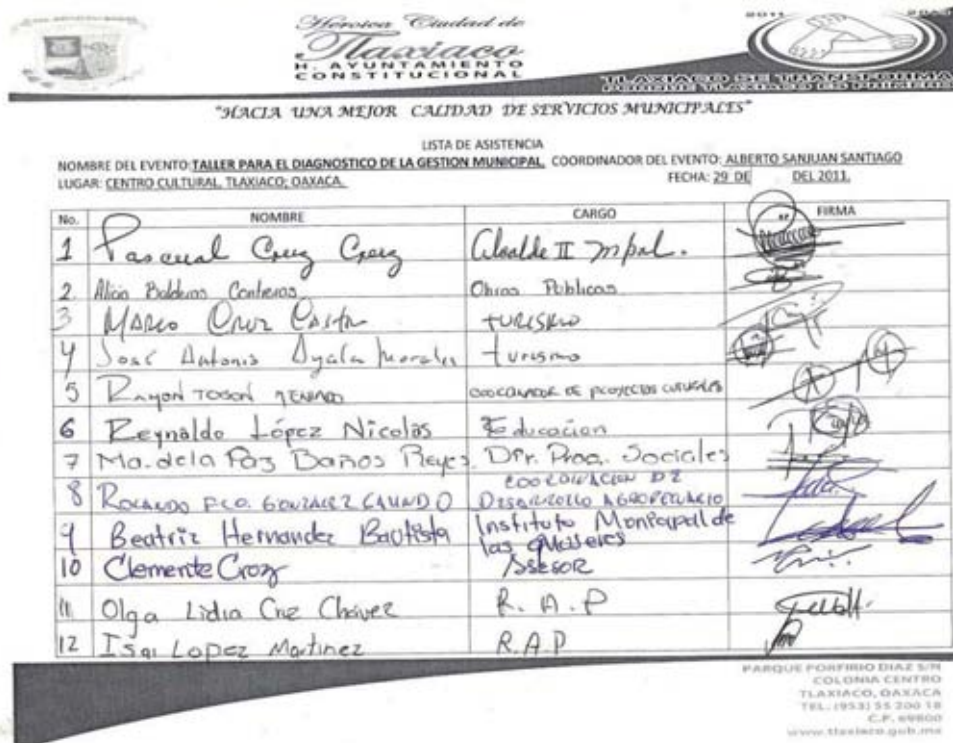 Heroica Ciudad de
Tlaxiaco
H. AYUNTAMIENTO
CONSTITUCIONAL
2011
TLAXIACO SE TRANSFORMA
PORQUE TLAXIACO ES PRIMERO
"HACIA UNA MEJOR CALIDAD DE SERVICIOS MUNICIPALES"
LISTA DE ASISTENCIA
NOMBRE DEL EVENTO: TALLER PARA EL DIAGNOSTICO DE LA GESTION MUNICIPAL. COORDINADOR DEL EVENTO: ALBERTO SANJUAN SANTIAGO
LUGAR: CENTRO CULTURAL, TLAXIACO; OAXACA. FECHA: 29 DE DEL 2011.
No. NOMBRE CARGO FIRMA
1 Pascual Cruz Cruz Alcalde II Mpal.
2. Alicia Balderas Contreras Obras Publicas
3 MARCO CRUZ turismo
4 José Antonio Ayala Morales turismo
5 COORDINADOR DE PROYECTOS CULTURALES
6 Reynaldo López Nicolás Educacion
7 Ma. de la Paz Baños Reyes. Dir. Prog. Sociales
8 ROLANDO FCO. GONZALEZ GALINDO COORDINACION DE
DESARROLLO AGROPECUARIO
9 Beatriz Hernandez Bautista Instituto Municipal de
las Mujeres
10 Clemente Cruz Asesor
11. Olga Lidia Cruz Chávez R. A. P
12 Isai Lopez Martinez R.A.P
PARQUE PORFIRIO DIAZ S/N
COLONIA CENTRO
TLAXIACO, OAXACA
TEL.: (953) 55 200 18
C.P. 69800
www.tlaxiaco.gob.mx